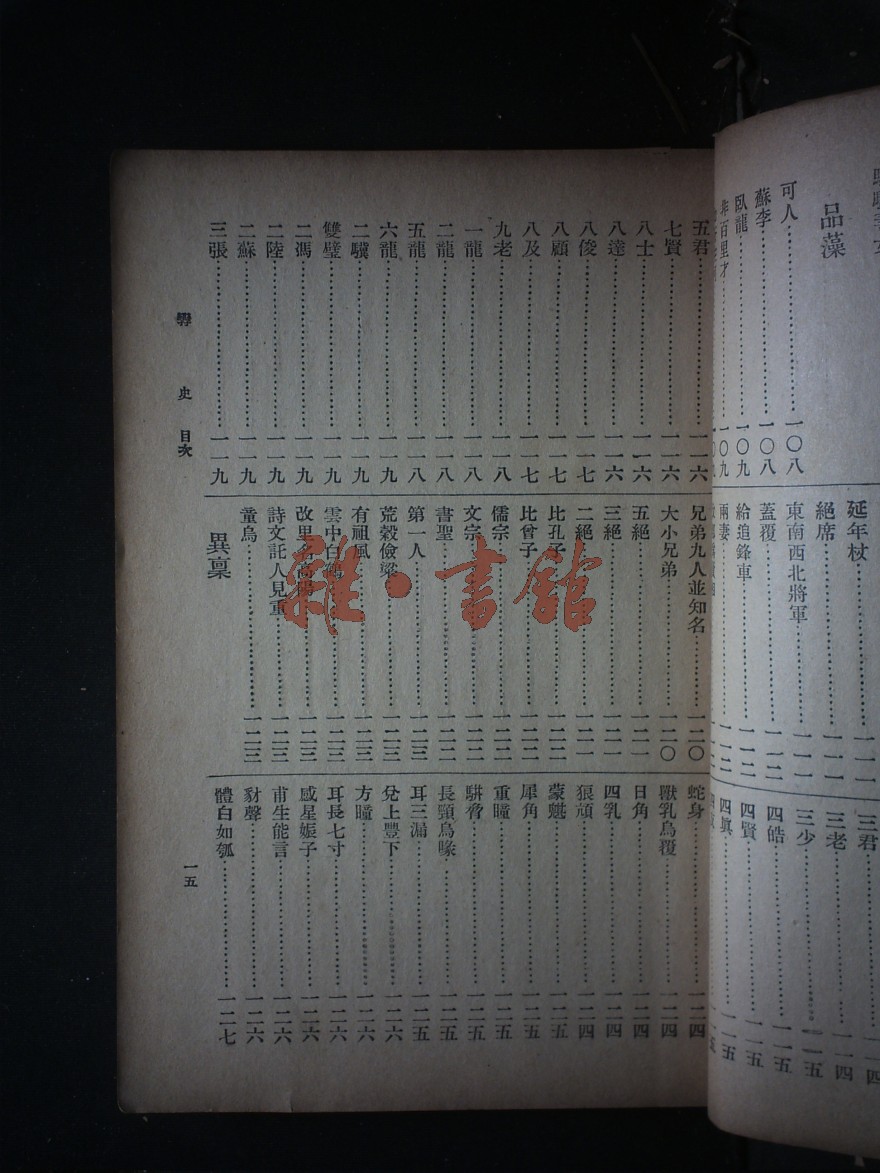 品藻
可人 一〇八
蘇李 一〇八
臥龍 一〇九
非百里才 一〇九
延年杖 一一一
絕席 一一一
東南西北將軍 一一一
蓋覆 一一二
給追鋒車 一一二
兩妻 一一二
三君 一一四
三老 一一四
三少 一一五
四皓 一一五
四賢 一一五
四眞 一一五
五君 一一六
七賢 一一六
八士 一一六
八達 一一六
八俊 一一七
八顧 一一七
八及 一一七
九老 一一八
一龍 一一八
二龍 一一八
五龍 一一八
六龍 一一九
二驥 一一九
雙璧 一一九
二馮 一一九
二陸 一一九
二蘇 一一九
三張 一一九
兄弟九人並知名 一二〇
大小兄弟 一二〇
五絕 一二一
三絕 一二一
二絕 一二一
比孔子 一二二
比曾子 一二二
儒宗 一二二
文宗 一二二
書聖 一二二
第一人 一二三
荒穀儉粱 一二三
有祖風 一二三
雲中白鶴 一二三
改里名高陽 一二三
詩文託人見重 一二三
童烏 一二三
異稟
蛇身 一二四
獸乳鳥覆 一二四
日角 一二四
四乳 一二四
狼頑 一二四
蒙魌 一二五
犀角 一二五
重瞳 一二五
駢脅 一二五
長頸鳥喙 一二五
耳三漏 一二五
兌上豐下 一二六
方瞳 一二六
耳長七寸 一二六
感星娠子 一二六
甫生能言 一二六
豺聲 一二六
體白如瓠 一二七
史 目次
一五
雜·書館